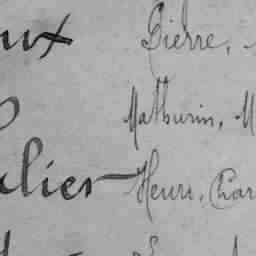 ux Pierre,
Mathurin, M
lier Henri, Char